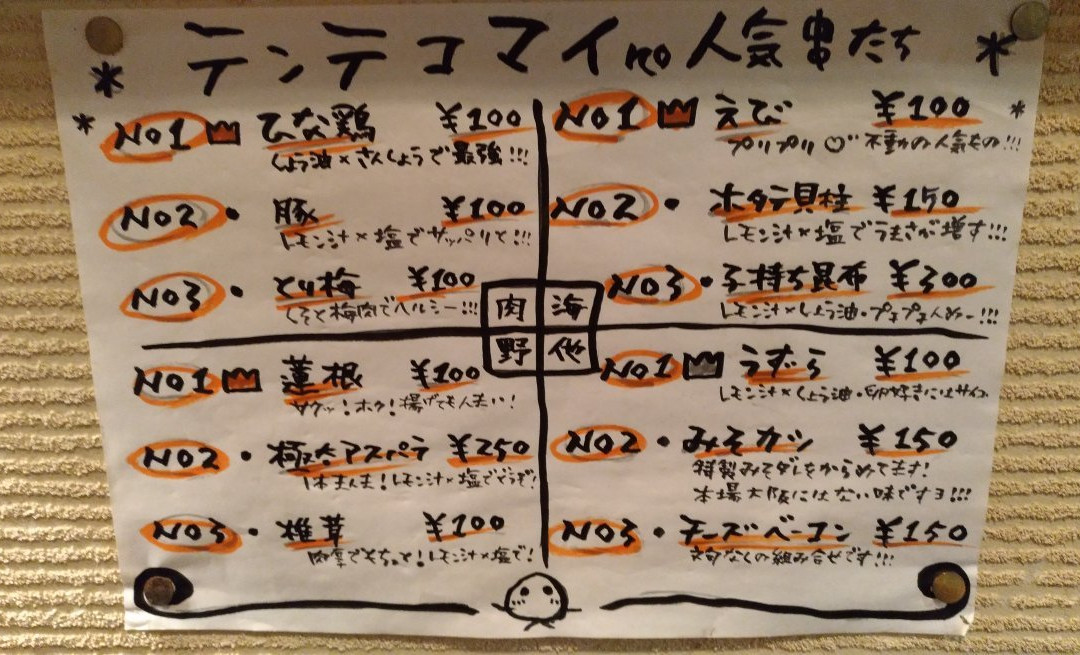 テンテコマイno人気串たち
肉
No1 ひな鶏 ¥100
しょう油×さんしょうで最強!!!
No2・豚 ¥100
レモン汁×塩でサッパリと!!!
No3・とり梅 ¥100
しそと梅肉でヘルシー!!!
海
No1 えび ¥100
プリプリ♡不動の人気もの!!!
No2・ホタテ貝柱 ¥150
レモン汁×塩でうまさが増す!!!
No3・子持ち昆布 ¥300
レモン汁×しょう油・プチプチんめー!!!
野
No1 蓮根 ¥100
サクッ!ホク!揚げても人夫い!
No2・極太アスパラ ¥250
1本まんま!レモン汁×塩でどうぞ!
No3・椎茸 ¥100
肉厚でもちっと!レモン汁×塩で!
他
No1 うずら ¥100
レモン汁×しょう油・卵好きにはサイコー
No2・みそカツ ¥150
特製みそダレをからめてます!
本場大阪にはない味ですヨ!!!
No3・チーズベーコン ¥150
文句なしの組み合せです!!!